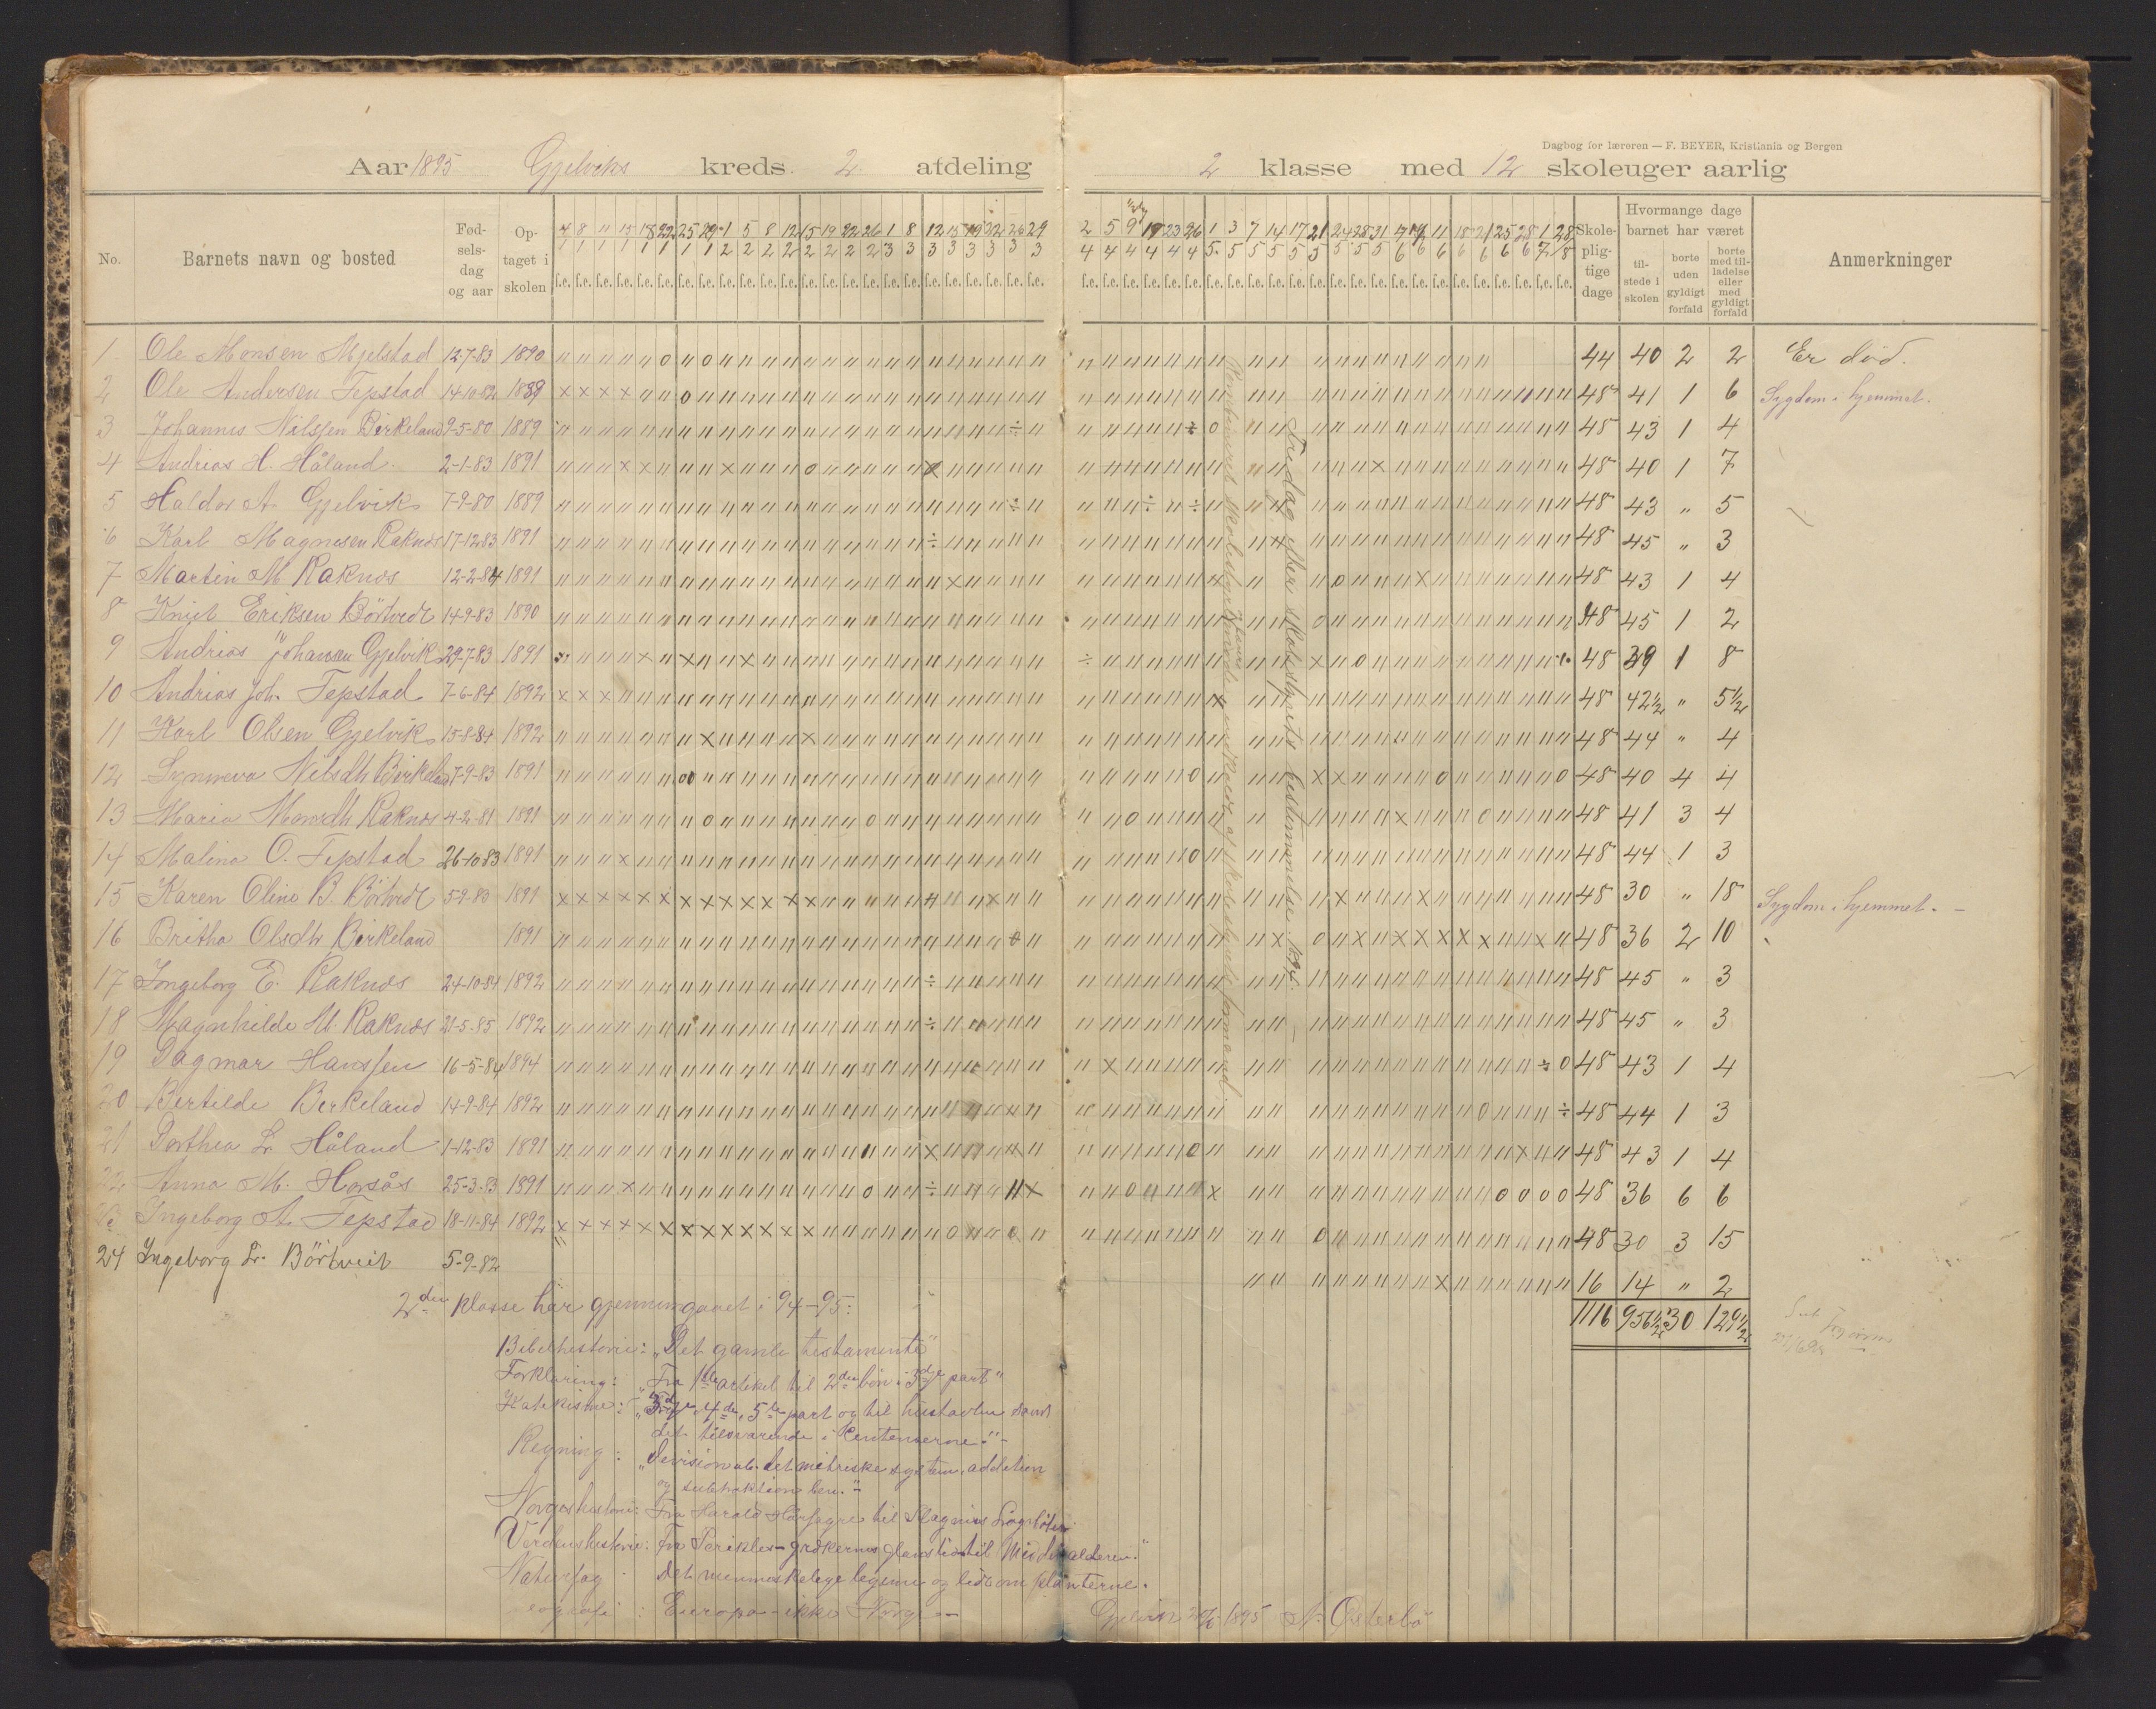 Dagbog for læreren — F. BEYER, Kristiania og Bergen
Aar 1895 Gjelviks kreds. 2 afdeling
2 klasse med 12 skoleuger aarlig
No. Barnets navn og bosted Fød-sels-dag og aar Op-taget i skolen
4 8 11 15 18 22 25 29 1 5 8 12 15 19 22 26 1 8 12 15 19 22 26 29
1 1 1 1 1 1 1 1 2 2 2 2 2 2 2 2 3 3 3 3 3 3 3 3
2 5 9 19 23 26 1 3 7 14 17 21 24 28 31 4 11 18 21 25 28 1 28
4 4 4 4 4 4 5 5 5 5 5 5 5 5 5 6 6 6 6 6 6 7 8
Skole-plig-tige dage
Hvormange dage barnet har været
til-stede i skolen
borte uden gyldigt forfald
borte med til-ladelse eller med gyldigt forfald
Anmerkninger
1 Ole Monsen Mjelstad 12-7-83 1890 44 40 2 2 Er död.
2 Ole Andersen Tepstad 14-10-82 1889 48 41 1 6 Sygdom i hjemmet.
3 Johannes Nilsen Birkeland 9-5-80 1889 48 43 1 4
4 Andreas H. Håland. 2-1-83 1891 48 40 1 7
5 Haldor A. Gjelvik 7-9-80 1889 48 43 " 5
6 Karl Magnesen Raknes 17-12-83 1891 48 45 " 3
7 Martin M Raknes 12-2-84 1891 48 43 1 4
8 Knut Eriksen Börtvedt 14-9-83 1890 48 45 1 2
9 Andreas Johansen Gjelvik 29-7-83 1891 48 39 1 8
10 Andreas Joh. Tepstad 7-6-84 1892 48 42½ " 5½
11 Karl Olsen Gjelvik 15-8-84 1892 48 44 " 4
12 Synneva Nilsdtr Birkeland 7-9-83 1891 48 40 4 4
13 Maria Monsdtr Raknes 4-2-81 1891 48 41 3 4
14 Malina O. Tepstad 26-10-83 1891 48 44 1 3
15 Karen Oline B. Börtvedt 5-9-83 1891 48 30 " 18 Sygdom i hjemmet. -
16 Britha Olsdtr Birkeland 1891 48 36 2 10
17 Ingeborg E. Raknes 24-10-84 1892 48 45 " 3
18 Magnhilde M Raknes 21-5-85 1892 48 45 " 3
19 Dagmar Hanssen 16-5-84 1894 48 43 1 4
20 Bertilde Birkeland 14-9-84 1892 48 44 1 3
21 Dorthea L. Håland 1-12-83 1891 48 43 1 4
22 Anna M. Horsås 25-3-83 1891 48 36 6 6
23 Ingeborg A. Tepstad 18-11-84 1892 48 30 3 15
24 Ingeborg L. Börtveit 5-9-82 16 14 " 2
1116 956½ 30 129½
Fridag efter skolestyrets bestemmelse. 1895.
2den klasse har gjennemgaaet i 94-95:
Bibelhistorie: "Det gamle testamente"
Forklaring: "Fra 1ste artikel til 2den bön i 3dje part"
Katekisme: "3dje, 4de, 5te part og til hustavlen samt
det tilsvarende i Centenserne." -
Regning: "Division ub. det metriske system, addition
og subtraktion ben." -
Norgeshistorie: Fra Harald Hårfagre til Magnus Lagaböter
Verdenshistorie: Fra Perikles - grækernes glanstid til Middelalderen."
Naturfag Det menneskelige legeme og lidt om planterne.
eografi: Europa - ikke Norge -
1895 A. Österbö